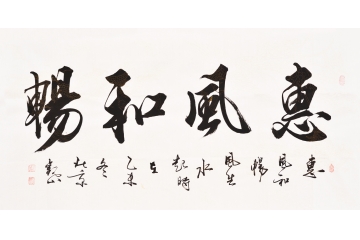 惠風和暢
惠
風和
暢
風生
水
起時
在
乙未
冬
北京